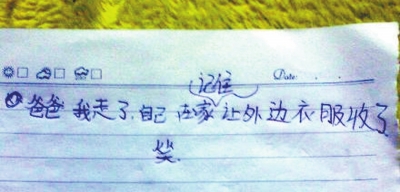 Date: . .
记住
爸爸 我走了.自己在家让外边衣服收了
笑.